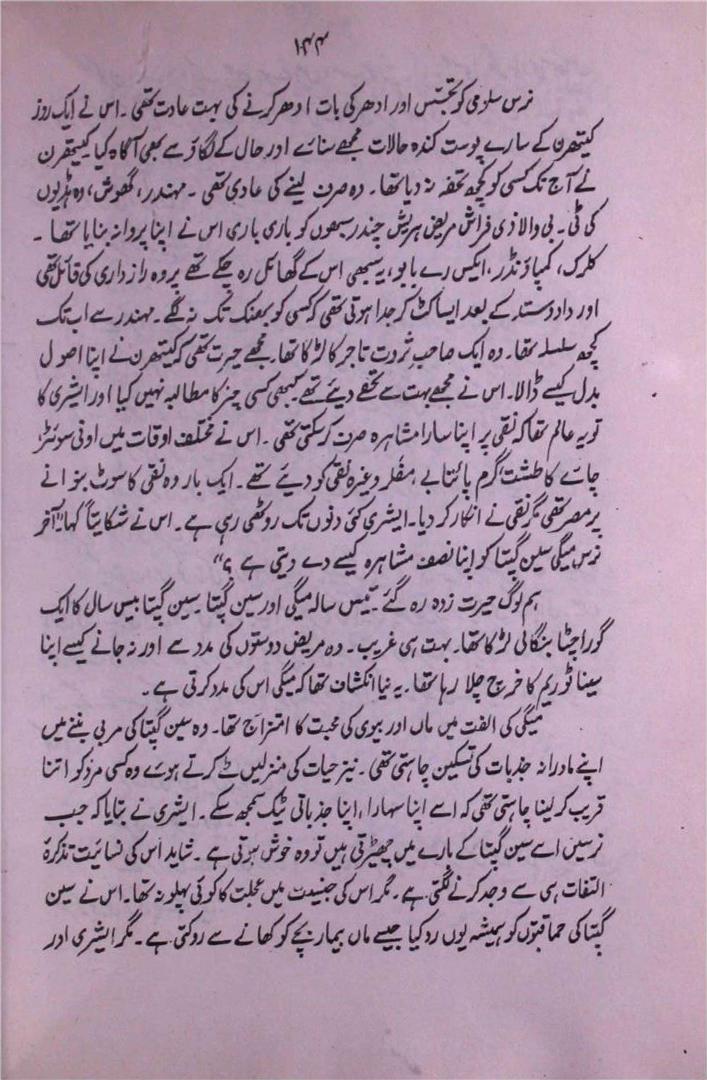 ۱۴۴
نرس سلومی کو تجسّس اور ادھر کی بات ادھر کرنے کی بہت عادت تھی ۔ اس نے ایک روز
کیتھرن کے سارے پوست کندہ حالات مجھے سنائے اور حال کے لگاؤ سے بھی آگاہ کیا کیتھرن
نے آج تک کسی کو کچھ تحفہ نہ دیا تھا۔ وہ صرف لینے کی عادی تھی ۔ مہندر، گھوش، وہ ہڈیوں
کی ٹی ۔ بی والا ذی فراش مریض ہریش چندر سبھوں کو باری باری اس نے اپنا پروانہ بنایا تھا ۔
کلرک، کمپاؤنڈر، ایکس رے بابو، یہ سبھی اس کے گھائل رہ چکے تھے پر وہ رازداری کی قائل تھی
اور داد و ستد کے بعد ایسا کٹ کر جدا ہوتی تھی کہ کسی کو بھنک تک نہ لگے ۔ مہندر سے اب تک
کچھ سلسلہ تھا۔ وہ ایک صاحبِ ثروت تاجر کا لڑکا تھا۔ مجھے حیرت تھی کہ کیتھرن نے اپنا اصول
بدل کیسے ڈالا۔ اس نے مجھے بہت سے تحفے دیئے تھے۔ کبھی کسی چیز کا مطالبہ نہیں کیا اور ایشری کا
تو یہ عالم تھا کہ نقی پر اپنا سارا مشاہرہ صرف کر سکتی تھی ۔ اس نے مختلف اوقات میں اونی سوئٹر،
چائے کا طشت، گرم پائتابے، مفلر وغیرہ نقی کو دیئے تھے ۔ ایک بار وہ نقی کا سوٹ بنوانے
پر مصر تھی مگر نقی نے انکار کر دیا۔ ایشری کئی دنوں تک روٹھی رہی ہے ۔ اس نے شکایتاً کہا، "آخر
نرس میگی سین گپتا کو اپنا نصف مشاہرہ کیسے دے دیتی ہے ؟"
ہم لوگ حیرت زدہ رہ گئے ۔ تیس سالہ میگی اور سین گپتا! سین گپتا بیس سال کا ایک
گورا چٹا بنگالی لڑکا تھا۔ بہت ہی غریب ۔ وہ مریض دوستوں کی مدد سے اور نہ جانے کیسے اپنا
سینا ٹوریم کا خرچ چلا رہا تھا۔ یہ نیا انکشاف تھا کہ میگی اس کی مدد کرتی ہے ۔
میگی کی الفت میں ماں اور بیوی کی محبت کا امتزاج تھا۔ وہ سین گپتا کی مربی بننے میں
اپنے مادرانہ جذبات کی تسکین چاہتی تھی ۔ نیز حیات کی منزلیں طے کرتے ہوئے وہ کسی مرد کو اتنا
قریب کر لینا چاہتی تھی کہ اسے اپنا سہارا، اپنا جذباتی ٹیک سمجھ سکے ۔ ایشری نے بتایا کہ جب
نرسیں اسے سین گپتا کے بارے میں چھیڑتی ہیں تو وہ خوش ہوتی ہے ۔ شاید اس کی نسائیت تذکرۂ
التفات ہی سے وجد کرنے لگتی ہے ۔ مگر اس کی جنسیت میں عجلت کا کوئی پہلو نہ تھا۔ اس نے سین
گپتا کی حماقتوں کو ہمیشہ یوں رد کیا جیسے ماں بیمار بچے کو کھانے سے روکتی ہے ۔ مگر ایشری اور